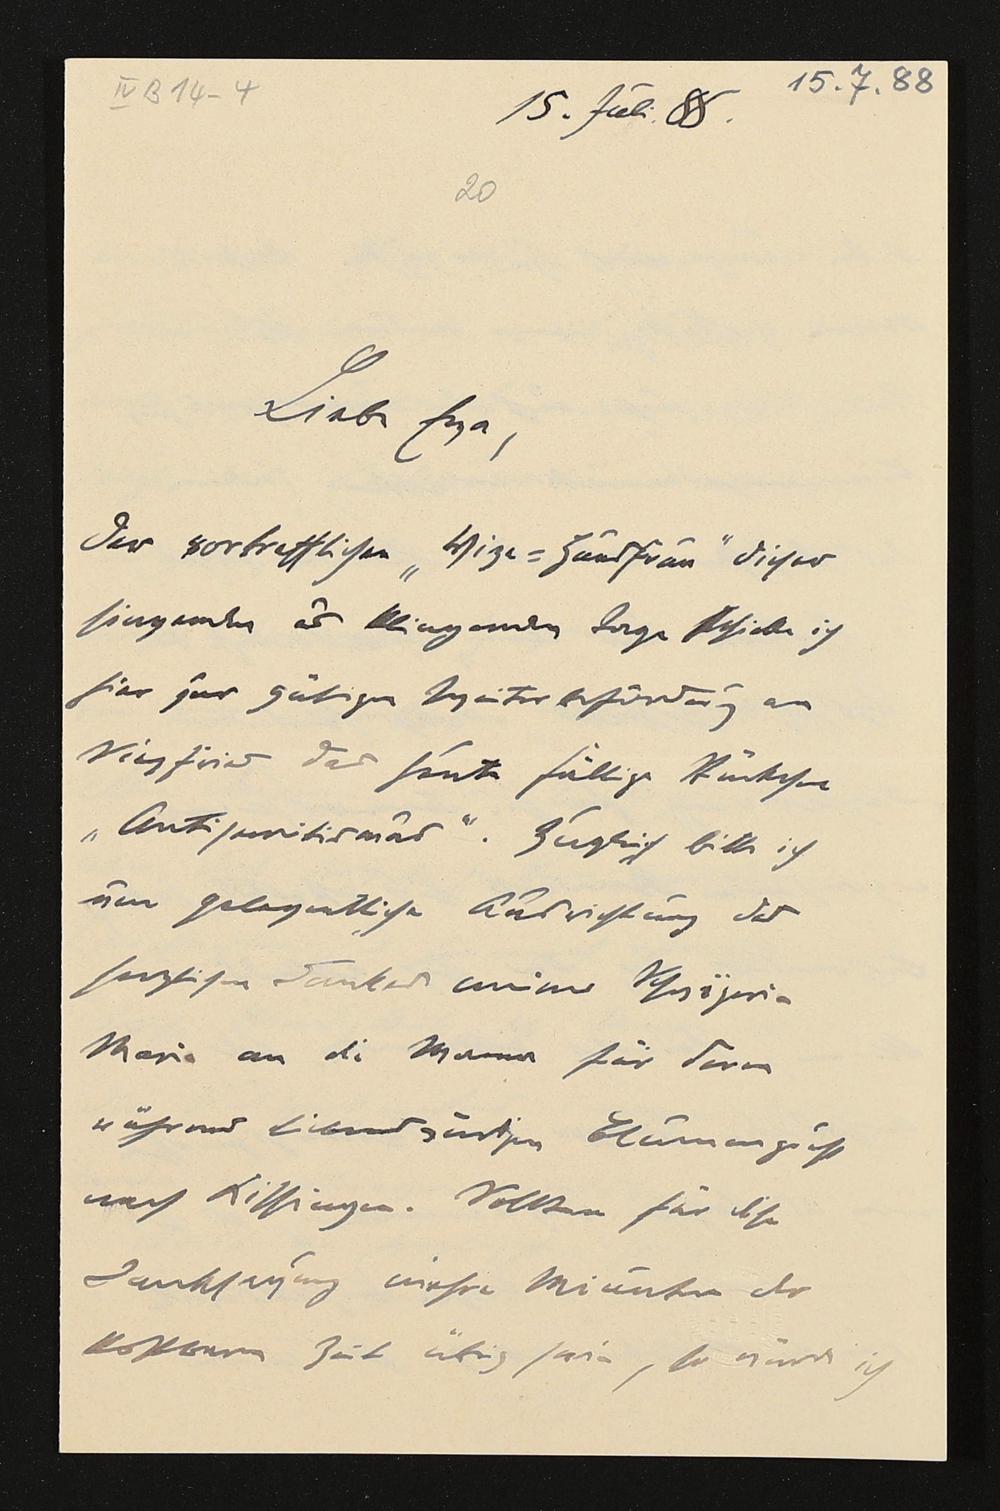 IV B 14-4
15. Juli. 88.
15.7.88
20
Liebe Eva,
Der vortrefflichen „Vize=Hausfrau" dieser
singenden u klingenden Tage schicke ich
hier zur gütigen Weiterbeförderung an
Siegfried das heute fällige Stückchen
„Antisemitismus". Zugleich bitte ich
um gelegentliche Ausrichtung des
herzlichen Dankes meiner Schwägerin
Maria an die Mama für deren
liebenswürdigen Blumengruß
nach Kissingen. Sollten für diese
Danksagung mehre Minuten der
kostbaren Zeit übrig sein, so würde ich